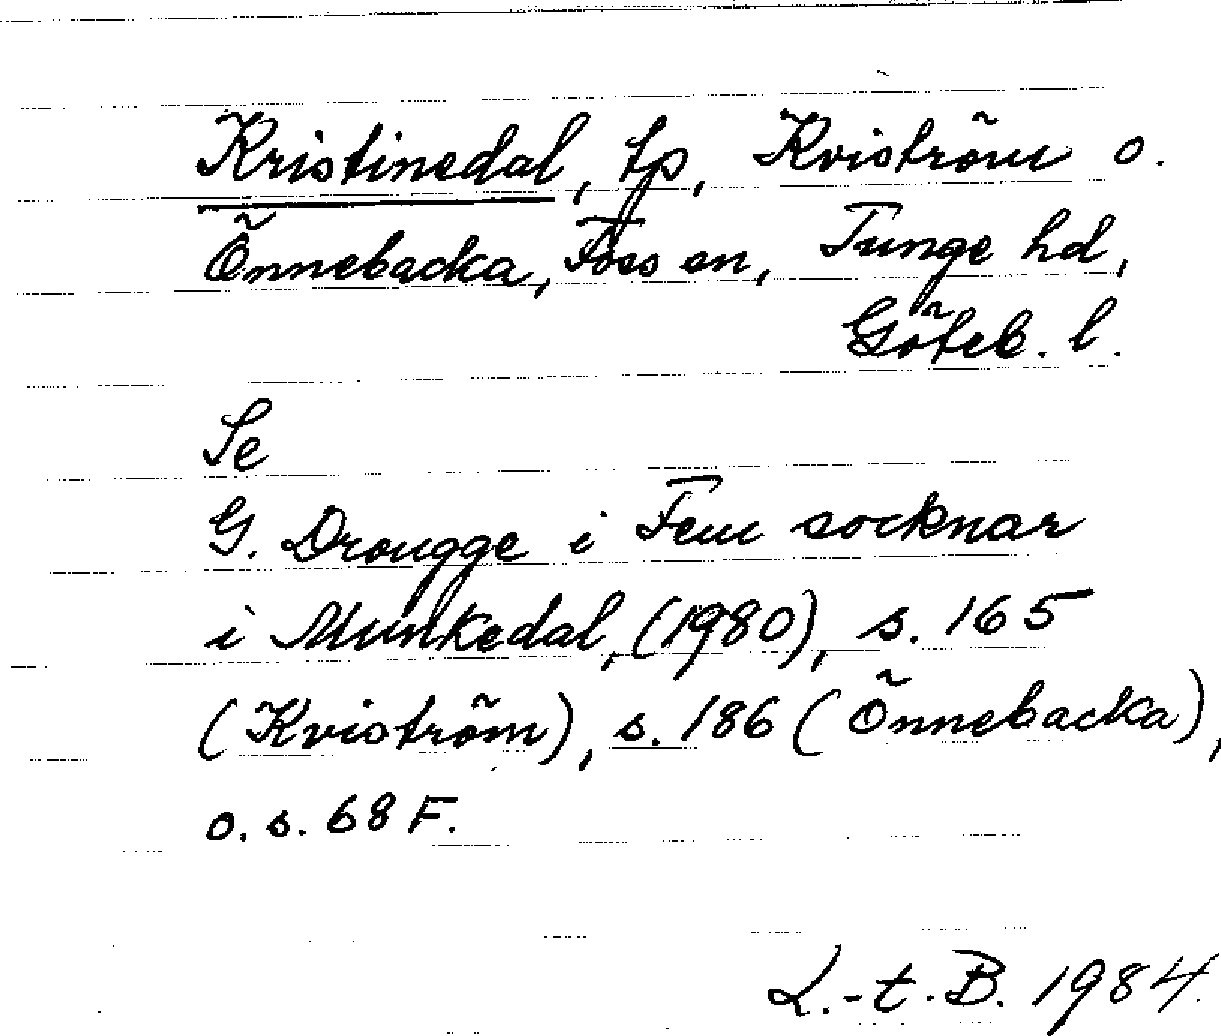 Kristinedal, tp, Kviström o.
Önnebacka, Foss sn, Tunge hd,
Göteb. l.
Se
G. Drougge i Fem socknar
i Munkedal, (1980), s. 165
(Kviström), s. 186 (Önnebacka),
o. s. 68 F.
L.-t. B. 1984.